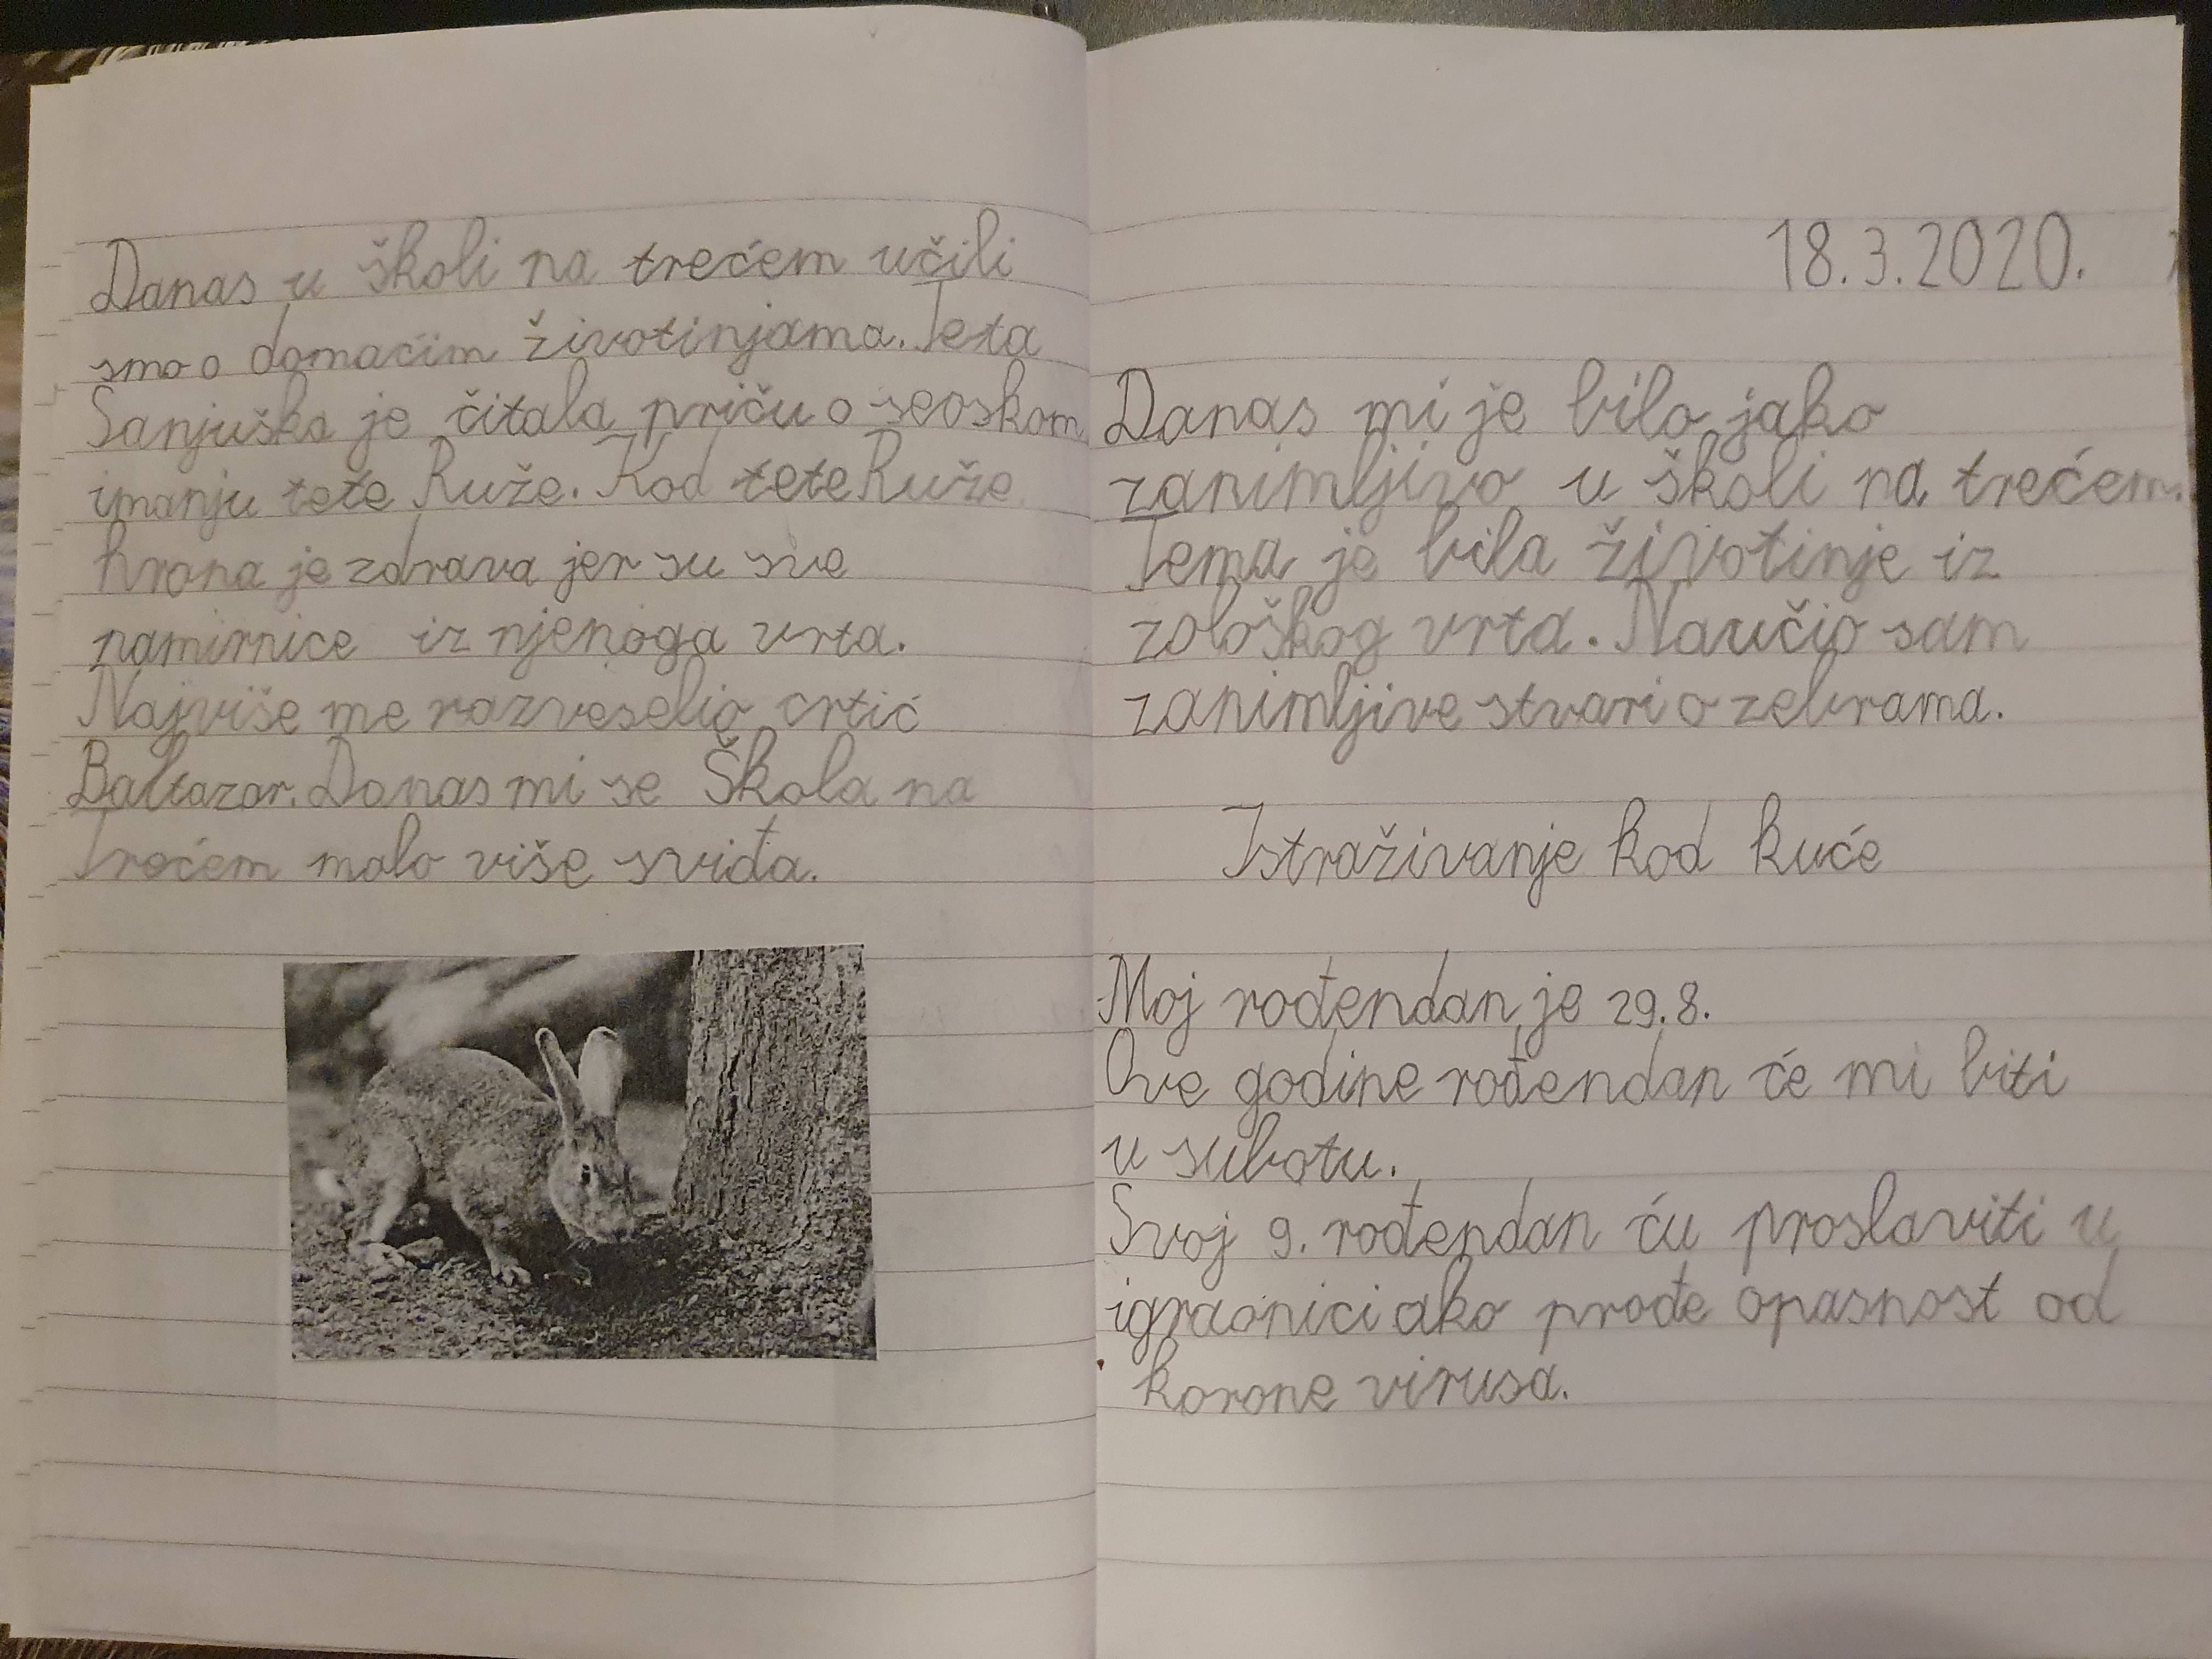 Danas u školi na trećem učili
smo o domaćim životinjama. Teta
Sanjuška je čitala priču o seoskom
imanju tete Ruže. Kod tete Ruže
hrana je zdrava jer su sve
namirnice iz njenoga vrta.
Najviše me razveselio crtić
Baltazar. Danas mi se Škola na
Trećem malo više sviđa.
18.3.2020.
Danas mi je bilo jako
zanimljivo u školi na trećem.
Tema je bila životinje iz
zološkog vrta. Naučio sam
zanimljive stvari o zebrama.
Istraživanje kod kuće
Moj rođendan je 29.8.
Ove godine rođendan će mi biti
u subotu.
Svoj 9. rođendan ću proslaviti u
igraonici ako prođe opasnost od
korone virusa.